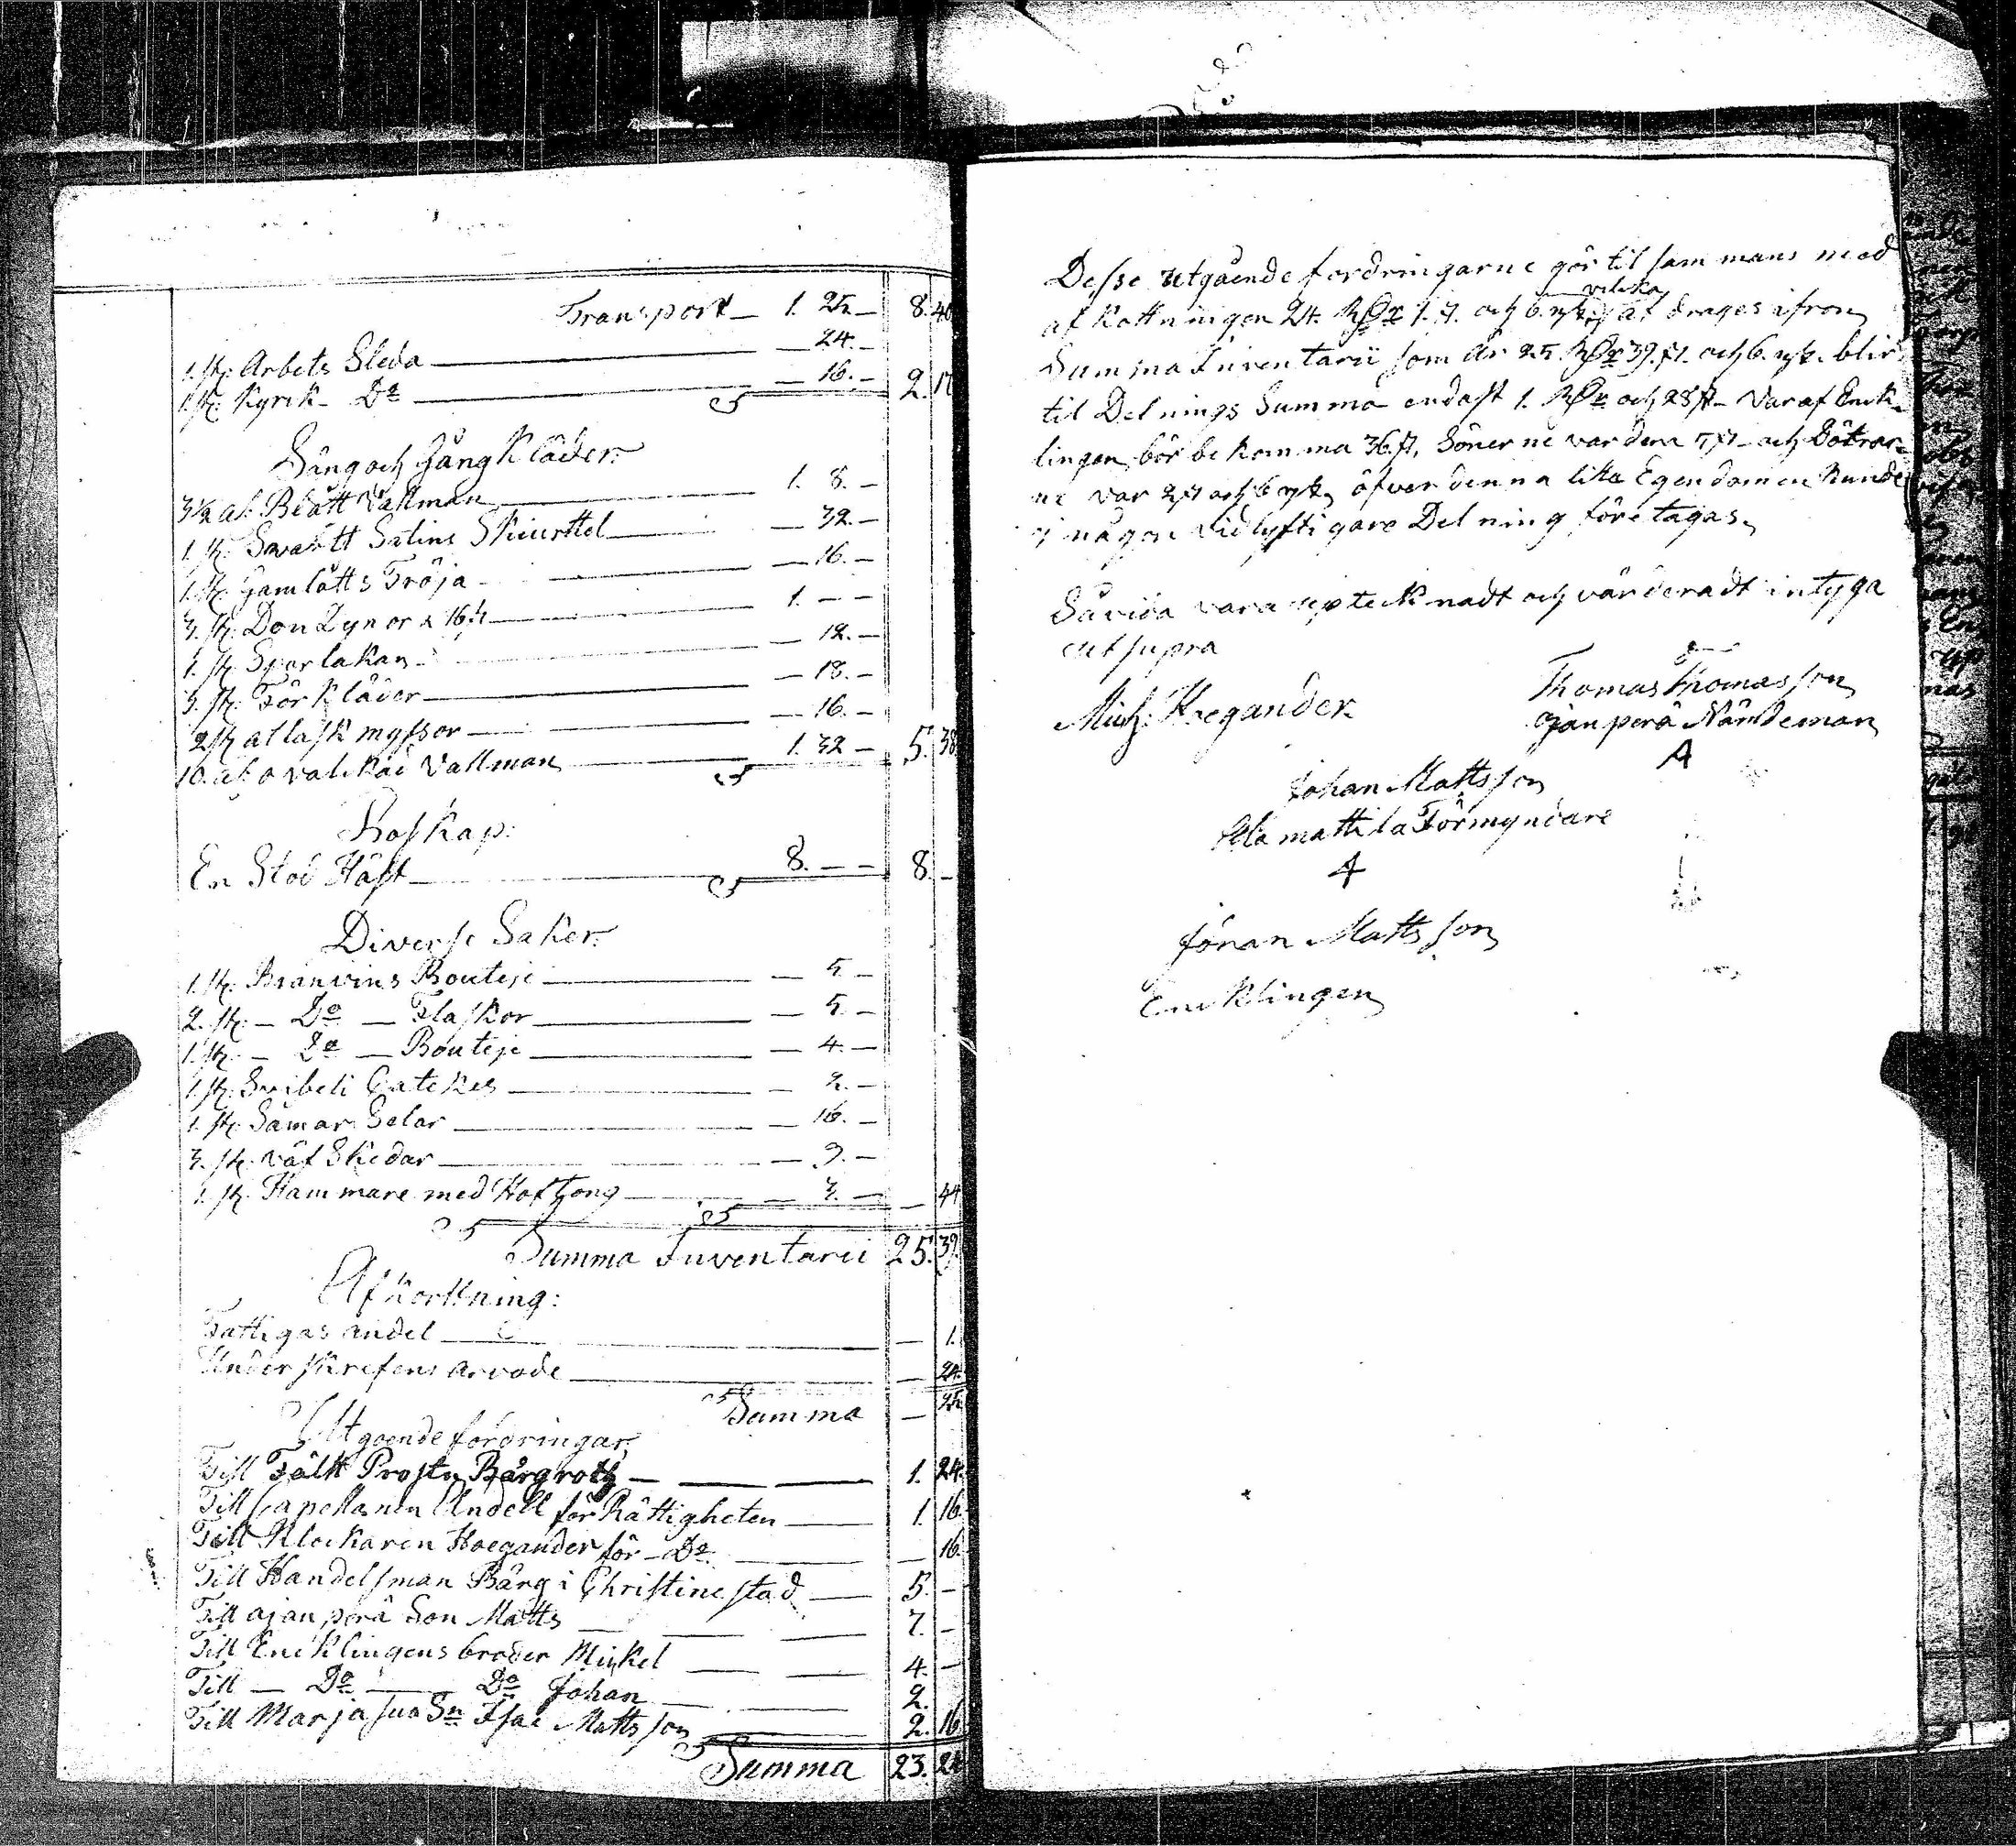 Transport — 1. 25. — 8. 40
1. st: Arbets Släda — 24. —
1. st: Kyrk- Do — 16. — 2. 17
Säng och Gång Kläder:
3½ al: Blått Vallman — 1. 8. —
1. st: Swartt Satins Skiurttel — 32. —
1. st: Gamlåtts Tröja — 16. —
3. st: Don Dynor a 16 — 1. — —
1. st: Sparlakan — 12. —
3. st: Förkläder — 18. —
2 st atlask myssor — 16. —
10. al: ovalckad Vallman — 1. 32 — 5. 38
Boskap:
En Stod Häst — 8. — — 8. —
Diverse Saker:
1. st: Bränvins Bouteje — 5. —
2. st: — Do — Flaskor — 5. —
1. st: — Do — Bouteje — 4. —
1. st: Catekes — 2. —
1. st: Sämar Selar — 16. —
3. st: Väf Skedar — 9. —
1. st: Hammare med Hoftong — 3. — — 44
Summa Inventarii 25. 39.
Afkorttning:
Fattigas andel — — 1.
Underskrefvens arvode — — 24.
Summa — 25.
Utgoende fordringar,
Till Fält Prosten Bärgroth — 1. 24.
Till Capellanen Andell för Rättigheten — 1. 16.
Till Klockaren Hoegander för — Do — 16.
Till Handelsman Bärg i Christinestad — 5. —
Till ajanperä Son Matts — 7. —
Till Encklingens broder Mickel — 4. —
Till — Do — Do Johan — 2.
Till Marjasua Sn Isac Mattsson — 2. 16
Summa 23. 24
Desse utgående fordringarne gör til sammans med
vilcka
af Kottningen 24. Rdr 1. s. och 6. rst. afdrages ifron
Summa Inventarii som är 25. Rdr 39. s. och 6. rst. blir
til Delnings Summa endast 1. Rdr och 28 s. Varaf Enck-
lingen bör bekomma 36. s. Sönerne vardera 5 s. och Dötrar-
ne var 2 s och 6 rst, öfver denna lilla Egendomen kunde
ej någon vidlyftigare Delning företagas,
Såvida vara uptecknadt och värderadt intyga
ut supra
Mich: Hoegander.
Thomas Thomasson
ajanperä Nämdeman
Johan Mattsson
Ylä mattila Förmyndare
Jöran Mattsson
Encklingen